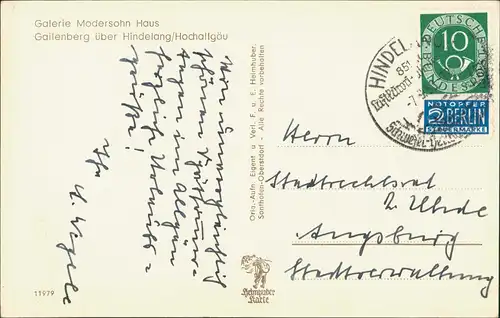 Galerie Modersohn Haus
Gailenberg über Hindelang/Hochallgäu
Von
schönen
Tagen im Allgäu
herzliche Urlaubs-
grüße!
Ihr
11979
Orig.-Aufn. Eigent. u. Verl. F. u. E. Heimhuber,
Sonthofen-Oberstdorf - Alle Rechte vorbehalten
Heimhuber
Karte
HINDELANG
850
Luftkurort
-7.
Schwefel-
DEUTSCHE
BUNDESPOST
10
NOTOPFER
2 BERLIN
STEUERMARKE
Herrn
Stadtrechtsrat
Uhde
Augsburg
Stadtverwaltung